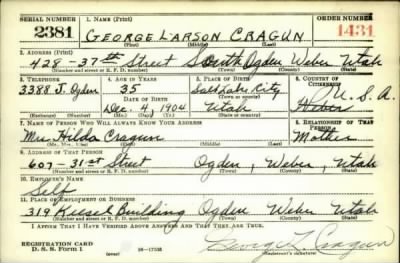 SERIAL NUMBER 1. NAME (Print) ORDER NUMBER
2381 GEORGE LARSON CRAGUN 1431
(First) (Middle) (Last)
2. ADDRESS (Print)
428 - 37th Street South Ogden Weber Utah
(Number and street or R. F. D. number) (Town) (County) (State)
3. TELEPHONE 4. AGE IN YEARS 5. PLACE OF BIRTH 6. COUNTRY OF CITIZENSHIP
3388 J. Ogden 35 Salt Lake City
DATE OF BIRTH (Town or county) U. S. A.
Dec. 4, 1904 Utah
(Exchange) (Number) (Mo.) (Day) (Yr.) (State or country)
7. NAME OF PERSON WHO WILL ALWAYS KNOW YOUR ADDRESS 8. RELATIONSHIP OF THAT PERSON
Mrs. Hilda Cragun Mother
(Mr., Mrs., Miss) (First) (Middle) (Last)
9. ADDRESS OF THAT PERSON
607 - 31st Street Ogden, Weber, Utah
(Number and street or R. F. D. number) (Town) (County) (State)
10. EMPLOYER'S NAME
Self
11. PLACE OF EMPLOYMENT OR BUSINESS
319 Kiesel Building Ogden Weber Utah
(Number and street or R. F. D. number) (Town) (County) (State)
I AFFIRM THAT I HAVE VERIFIED ABOVE ANSWERS AND THAT THEY ARE TRUE.
REGISTRATION CARD
D. S. S. Form 1 George L. Cragun
(Registrant's signature)